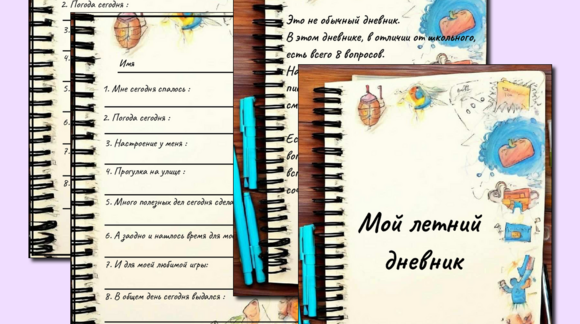 2. Погода сегодня :
3.
4.
5.
6.
7.
8.
Имя
1. Мне сегодня спалось :
2. Погода сегодня :
3. Настроение у меня :
4. Прогулка на улице :
5. Много полезных дел сегодня
6. А заодно и нашлось время для
7. И для моей любимой игры:
8. В общем день сегодня выдался :
Это не обычный дневник.
В этом дневнике, в отличии от школьного,
есть всего 8 вопросов.
Мой летний
дневник